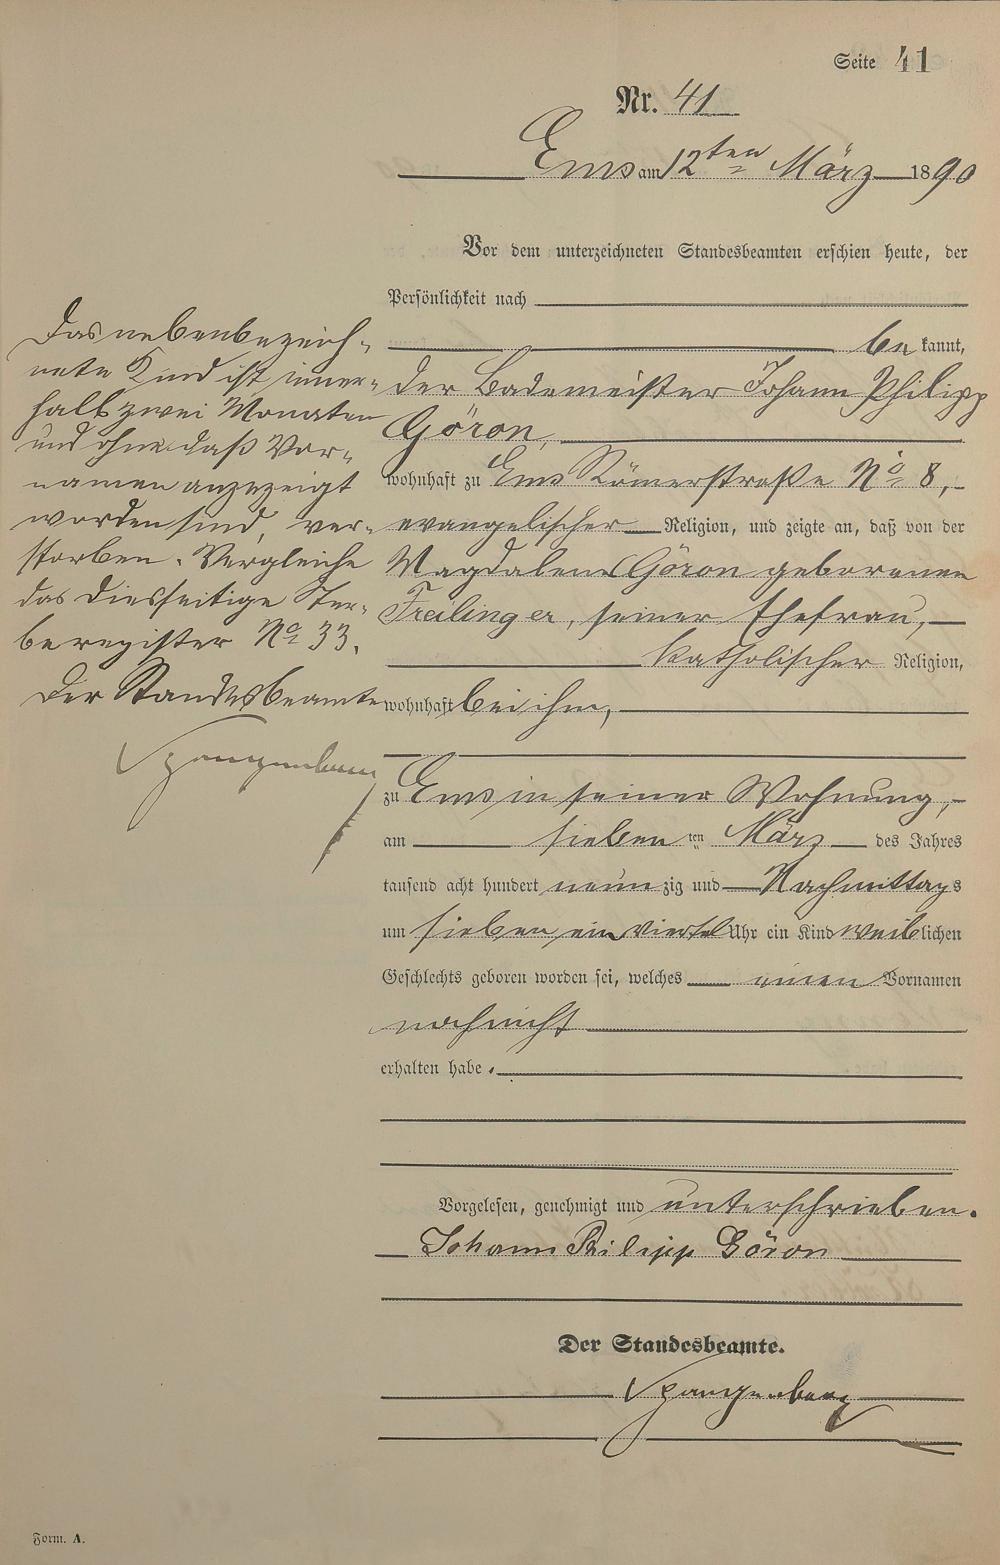 Seite 41
Nr. 41
Ems am 12ten März 1890
Vor dem unterzeichneten Standesbeamten erschien heute, der
Persönlichkeit nach
bekannt,
der Bademeister Johann Philipp
Göron,
wohnhaft zu Ems Römerstraße No 8,
evangelischer Religion, und zeigte an, daß von der
Magdalena Göron geborenen
Freilinger, seiner Ehefrau,
katholischer Religion,
wohnhaft bei ihm,
zu Ems in seiner Wohnung,
am siebenten März des Jahres
tausend acht hundert neunzig und Nachmittags
um sieben ein viertel Uhr ein Kind weiblichen
Geschlechts geboren worden sei, welches einen Vornamen
noch nicht
erhalten habe.
Vorgelesen, genehmigt und unterschrieben.
Johann Philipp Göron
Der Standesbeamte.
Spangenberg
Das nebenbezeich-
nete Kind ist inner-
halb zwei Monaten
und ohne daß Vor-
namen angezeigt
worden sind, ver-
storben. Vergleiche
das diesseitige Ster-
beregister No 33.
Der Standesbeamte
Spangenberg
Form. A.